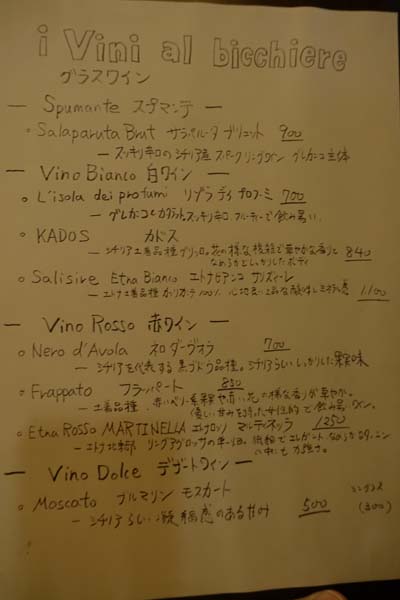 i Vini al bicchiere
グラスワイン
— Spumante スプマンテ —
○ Salaparuta Brut サラパルータ ブリュット 900
— スッキリ辛口のシチリア産 スパークリングワイン グレカーニコ主体
— Vino Bianco 白ワイン —
○ L'isola dei profumi リゾラ ディ プロフーミ 700
— グレカーニコとカタラット。スッキリ辛口、フルーティーで飲み易い。
○ KADOS カドス
— シチリア土着品種グリッロ。花の様な 華やかな香りと 840
なめらかとしっかりしたボディ
○ Salisire Etna Bianco エトナビアンコ サリズィーレ
— エトナ土着品種 カリカンテ100% 心地良い上品な酸味とミネラル感 1100
— Vino Rosso 赤ワイン —
○ Nero d'Avola ネロ ダーヴォラ 700
— シチリアを代表する黒ブドウ品種。シチリアらしいしっかりした果実味
○ Frappato フラッパート 850
— 土着品種。赤いベリー系果実や青い花の様な香りが華やか。
優しい甘みを持った女性的で飲み易いワイン。
○ Etna Rosso MARTINELLA エトナロッソ マルティネッラ 1250
— エトナ北部 リングアグロッサの 繊細でエレガント、なめらかなタンニン
の中にも力強さ。
— Vino Dolce デザートワイン —
○ Moscato ブルマリン モスカート 500
(300)
— シチリアらしい 感のある甘み